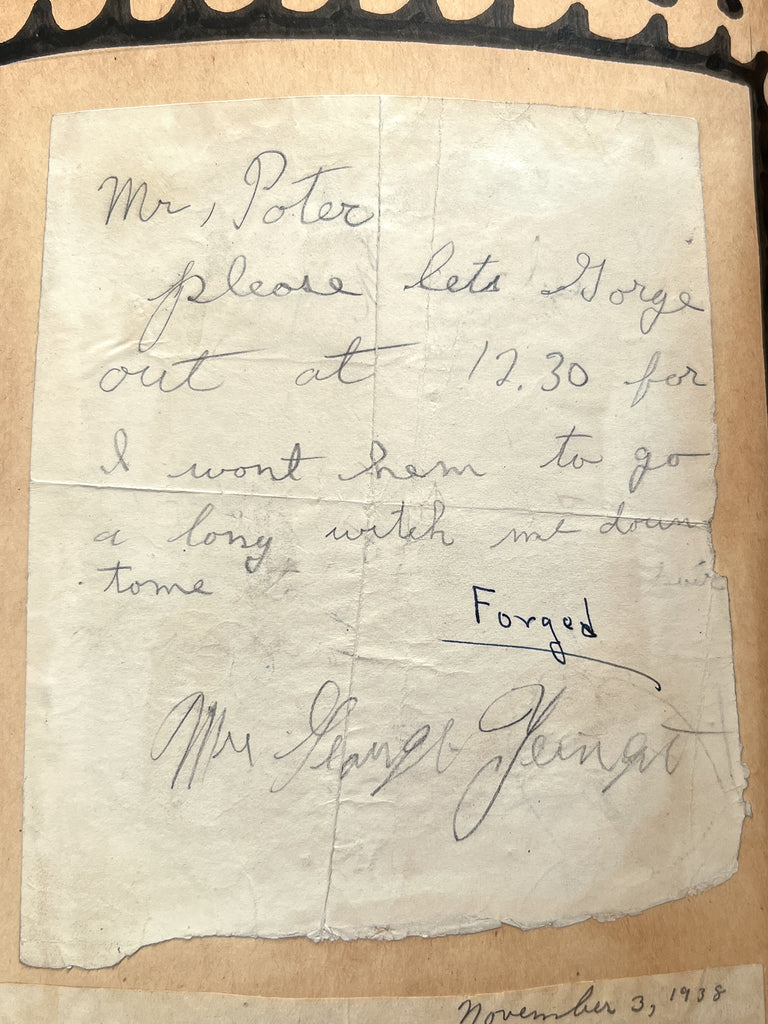 Mr, Poter
please lets Gorge
out at 12.30 for
I wont hem to go
a long witch me down
tome
Forged
Mrs George
November 3, 1938